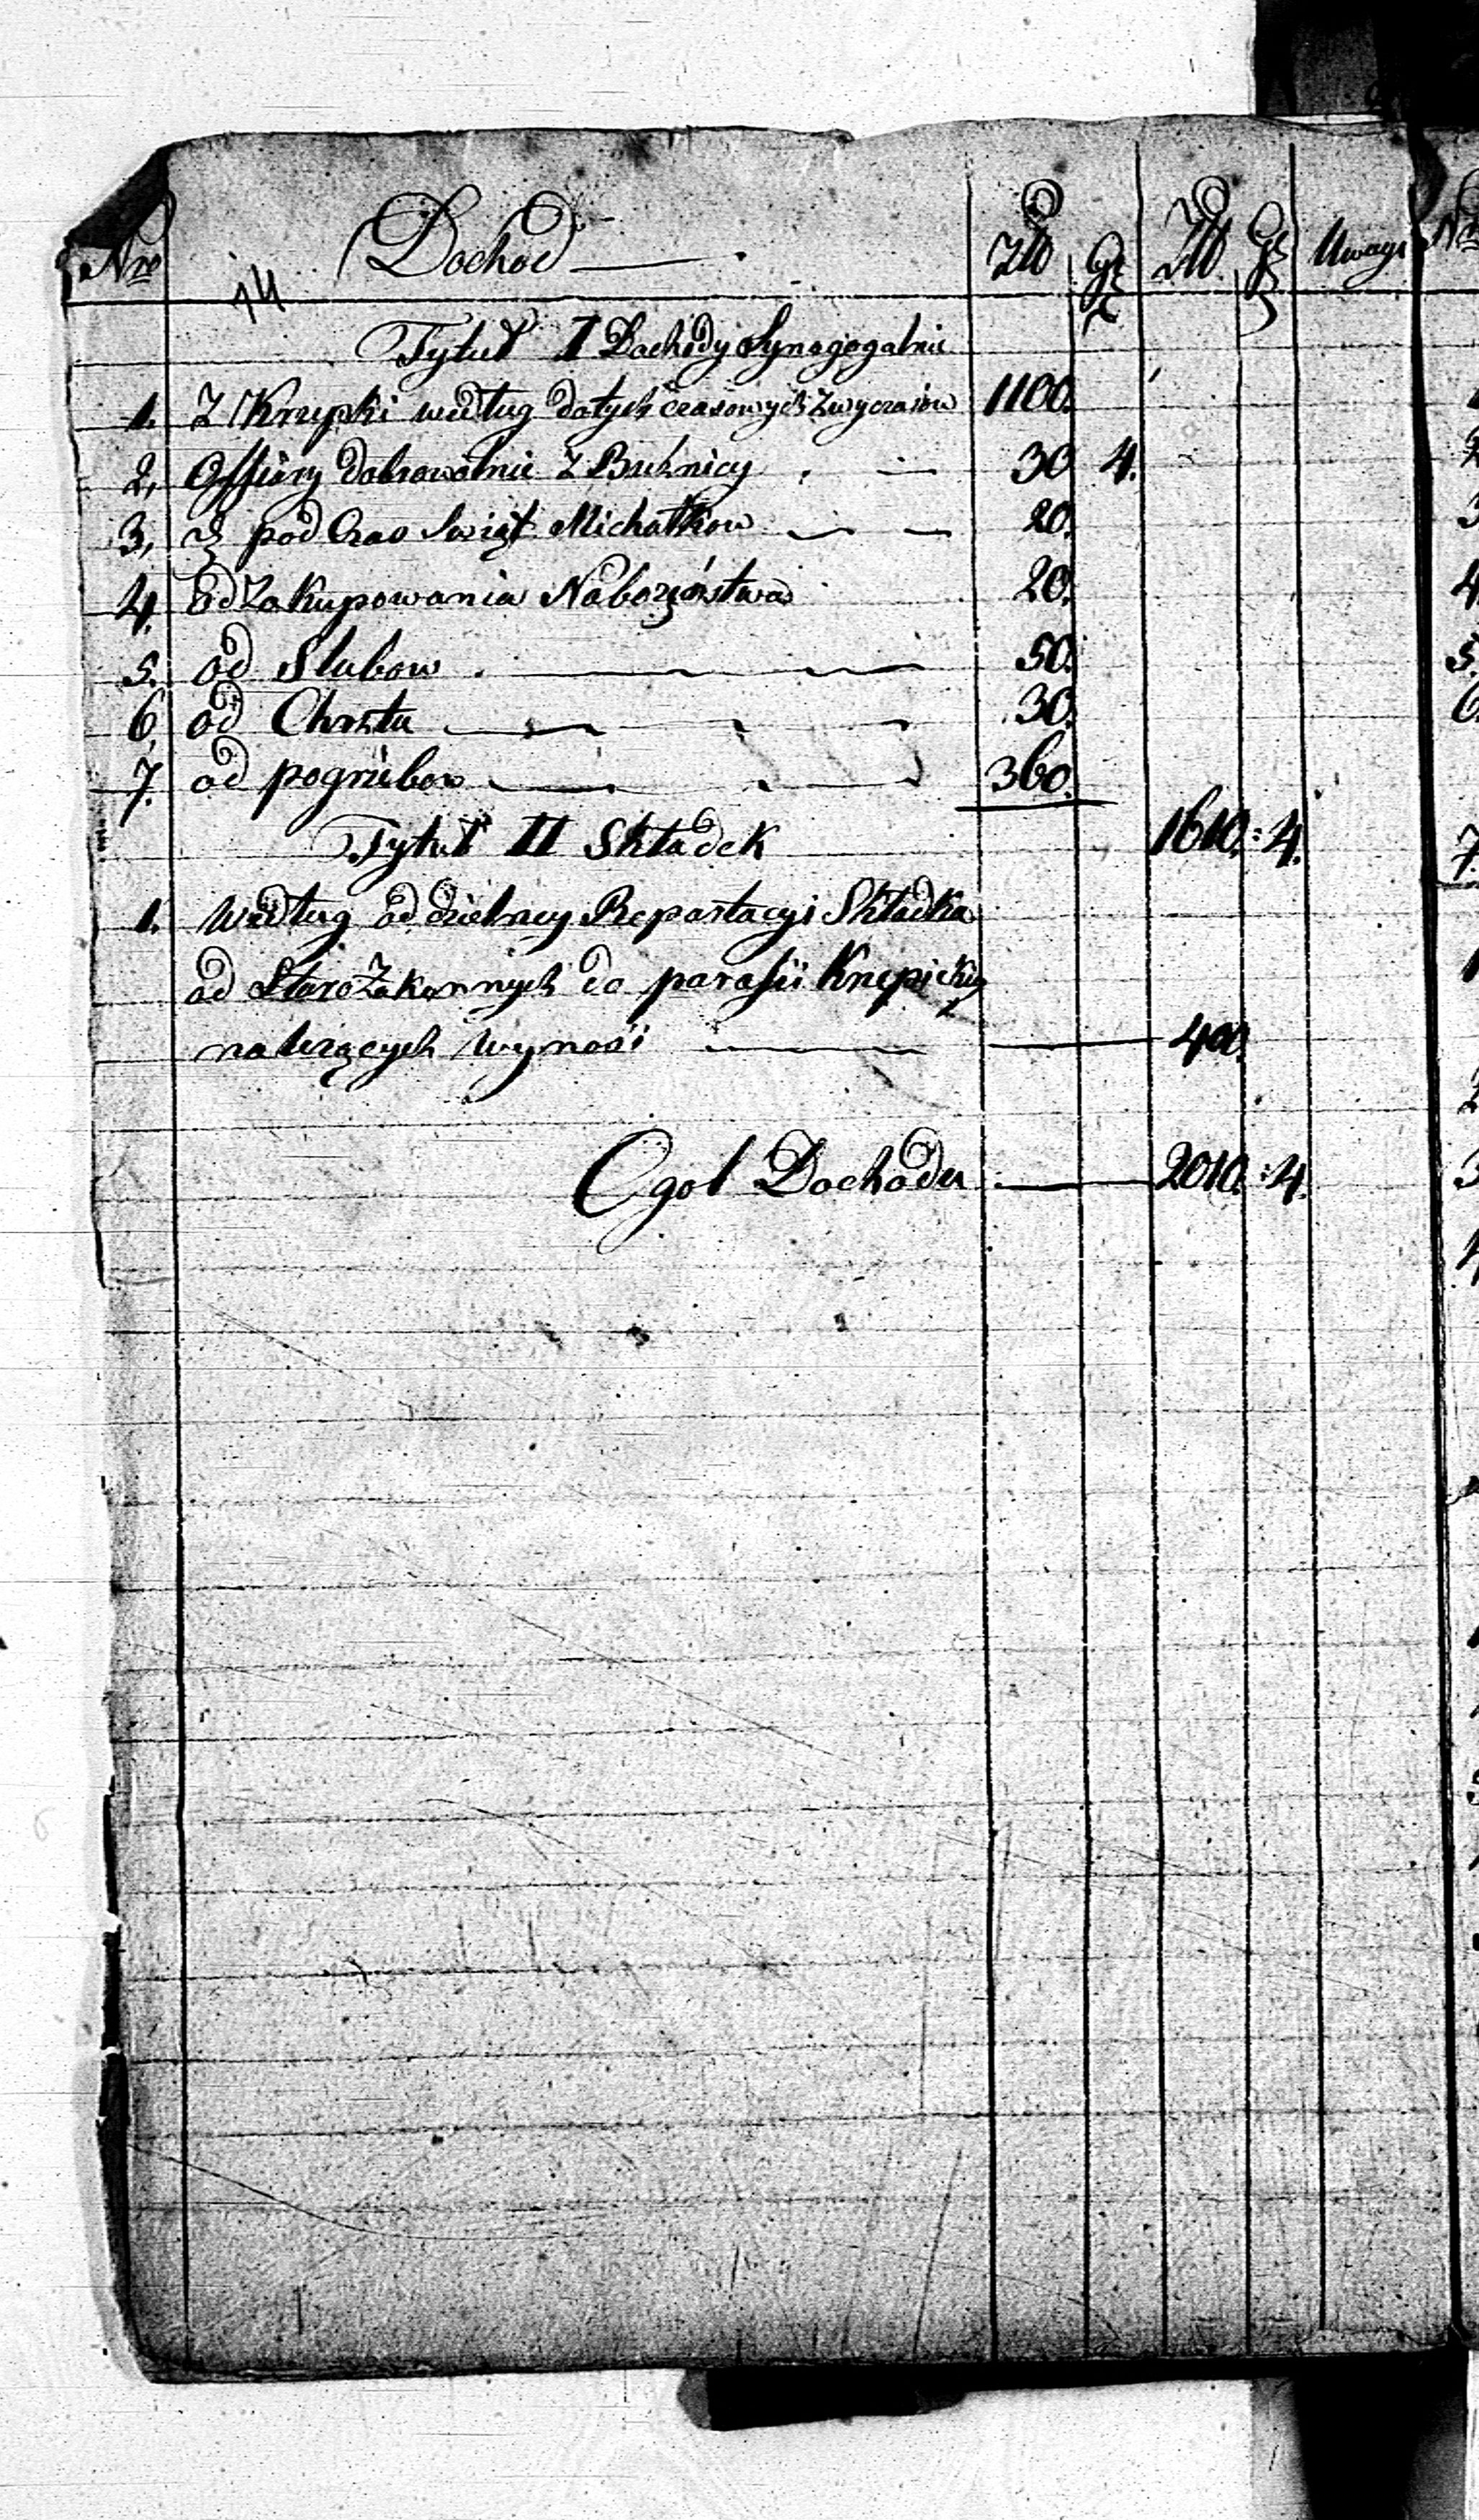 Nro Dochod Złł Gr Złł Gr Uwagi
14
Tytuł I Dochody Synagogalne
1. Z Krupki według dotych czasowych Zwyczaiow 1100.
2, Offiary dobrowolnie z Bużnicy 30 4.
3, pod Czas Swiąt Michałkow 20.
4. od zakupowania Nabozeństwa 20.
5. od Slubow 50.
6, od Chrztu 30.
7. od pogrzebow 360.
Tytuł II Składek 1610. : 4.
1. Według od dzielney Repartacyi Składka
od Starozakonnych do parafii
należących wynosi 400.
Ogol Dochodu 2010. : 4.